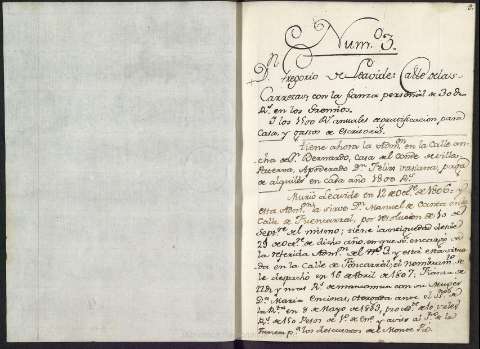 Num.º 3.
D.ⁿ Gregorio de Leavide: Calle de las
Carretas, con la fianza personal de 30
R.ˢ en los Gremios.
Y los 1500 R.ˢ anuales de gratificacion para
Casa, y gastos de escritorio.
tiene ahora la Adm.ⁿ en la Calle an-
cha de S.ⁿ Bernardo, Casa del Conde de Villa
Paterna, Apoderado D.ⁿ Felix paga
de alquiler en cada año 1800 R.ˢ
Murió Leavide en 12 de Oct.ᵉ de 1806: y
esta Adm.ⁿ la sirve D.ⁿ Manuel de en la
Calle de Fuencarral, por resolucion de 10 de
Sept.ᵉ del mismo; tiene la antiguedad desde
29 de Oct.ᵉ de dicho año, en que se encargó de
la referida Adm.ⁿ del N.º 3, y está
da en la Calle de Foncarral; el nombram.ᵗᵒ se
le despachó en 16 de Abril de 1807. Fianza de
R.ˢ de mancomun con su Muger
D.ᵃ Maria Encinas, otorgada ante el
la R.ˡ en 8 de Mayo de 1803,
R.ˢ de 150 Pesos de 1.º de En.º y aviso al de la
p.ᵃ los descuentos del Monte Pio.